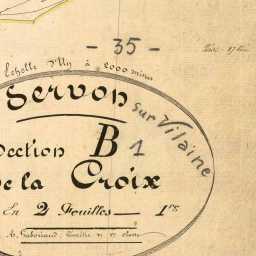 - 35 -
Echelle d'Un à 2000 mètres
Servon sur Vilaine
Section B 1
de la Croix
En 2 Feuilles — 1re